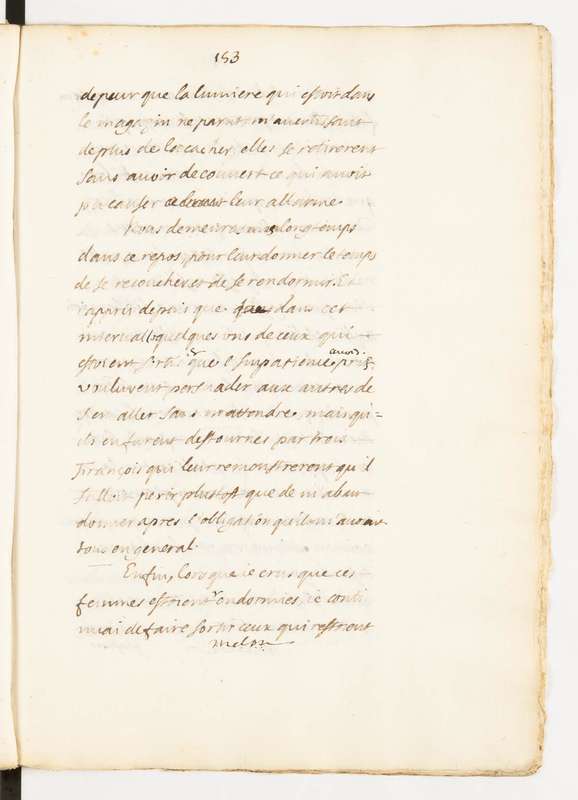 183
de peur que la lumiere qui estoit dans
le magazin ne parut m'avertissant
de plus de la cacher, elles se retirerent
sans avoir decouvert ce qui avoit
pu causer leur allarme
Nous demeurames longtemps
dans ce repos, pour leur donner le temps
de se recoucher et de se rendormir. Et
i'appris depuis que dans cet
intervalle quelques uns de ceux qui
estoient sortis que l'impatience avoit pris
voulurent persuader aux autres de
s'en aller sans m'attendre, mais qu'
ils en furent destournes par trois
François qui leur remonstrerent qu'il
falloit perir plustost que de m'aban
donner apres l'obligation qu'ils m'avoient
tous en general.
Enfin, lorsque ie crus que ces
femmes estoient endormies, ie conti
nuai de faire sortir ceux qui restoient